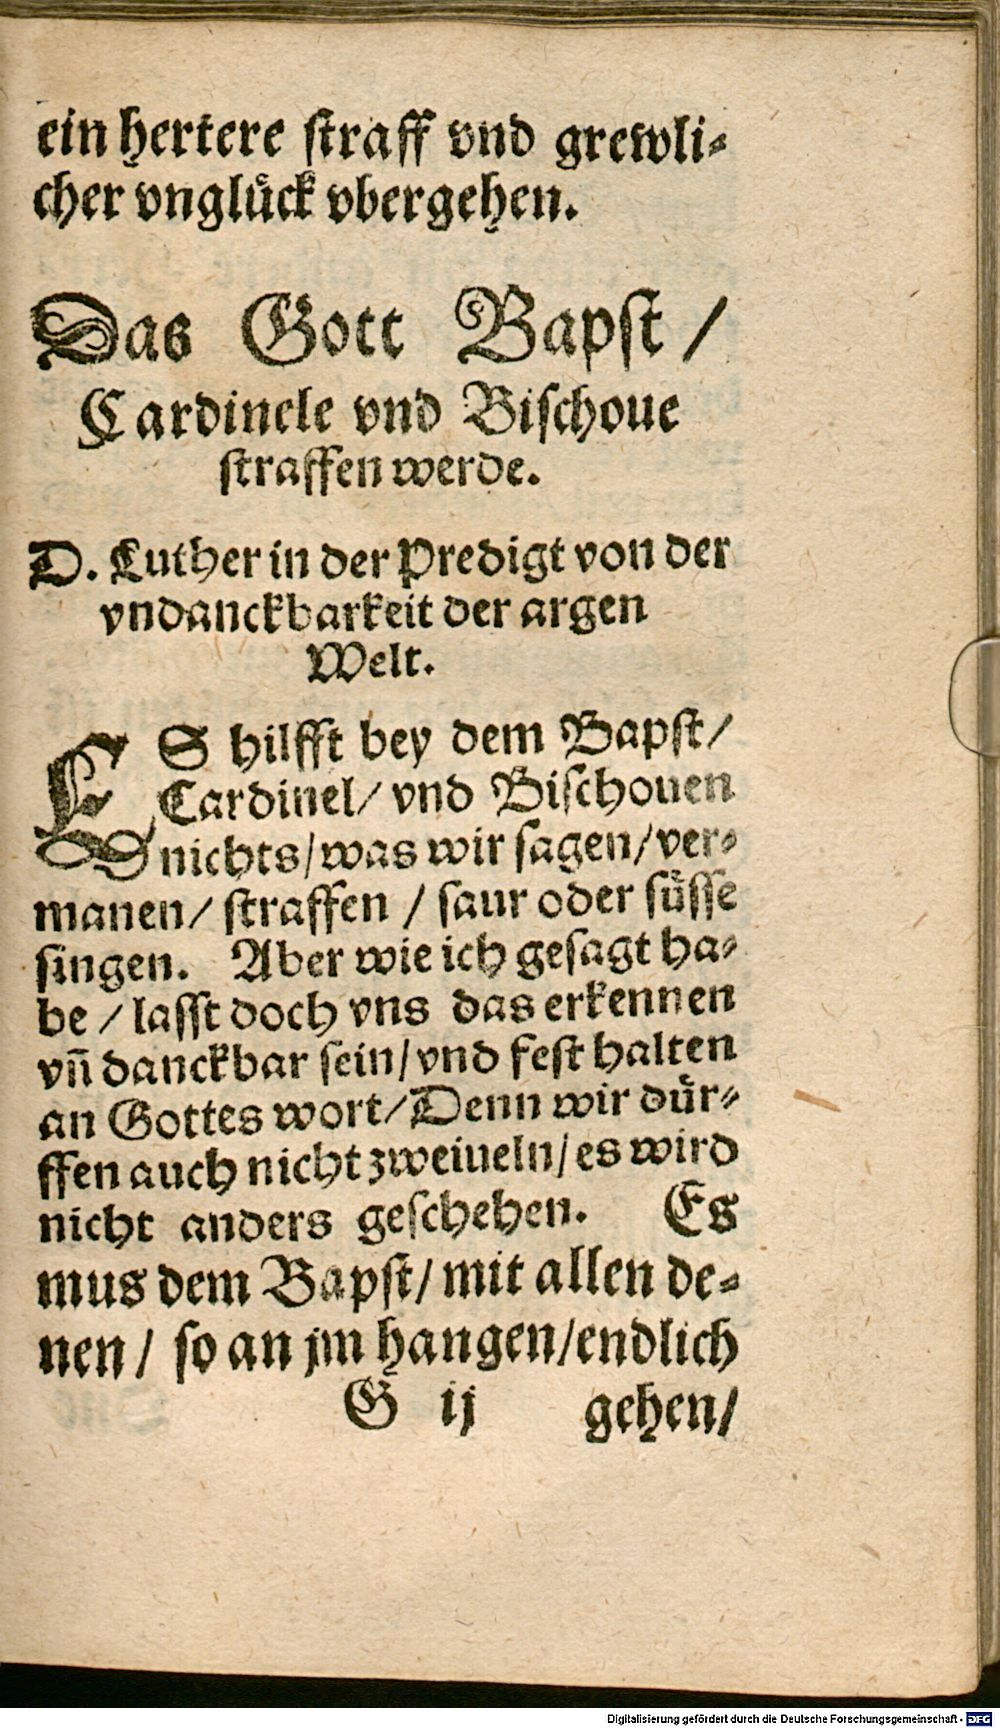 ein hertere straff vnd grewli-
cher vnglück vbergehen.
Das Gott Bapst /
Cardinele vnd Bischoue
straffen werde.
D. Luther in der Predigt von der
vndanckbarkeit der argen
Welt.
ES hilfft bey dem Bapst/
Cardinel/ vnd Bischouen
nichts/ was wir sagen/ ver-
manen/ straffen / saur oder süsse
singen. Aber wie ich gesagt ha-
be / lasst doch vns das erkennen
vñ danckbar sein/ vnd fest halten
an Gottes wort/ Denn wir dür-
ffen auch nicht zweiueln/ es wird
nicht anders geschehen. Es
mus dem Bapst/ mit allen de-
nen/ so an jm hangen/ endlich
G ij gehen/
Digitalisierung gefördert durch die Deutsche Forschungsgemeinschaft - DFG